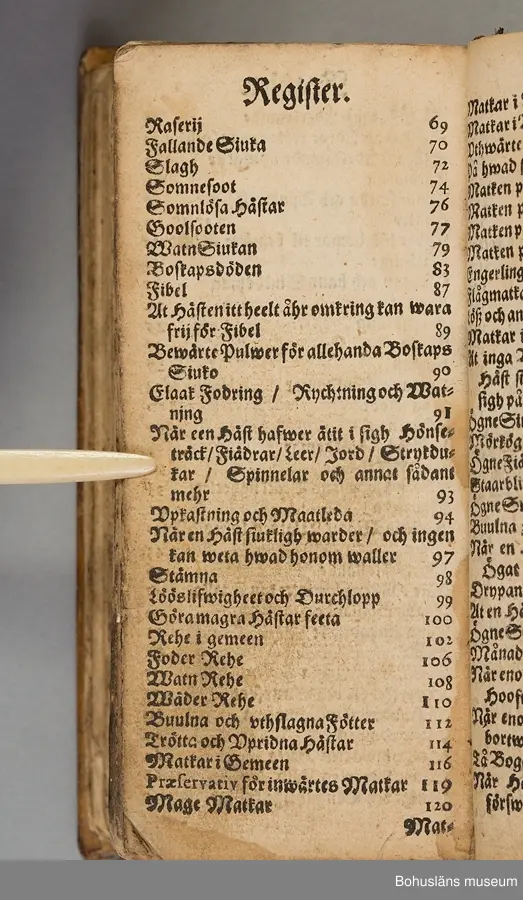 Register.
Raserij 69
Fallande Siuka 70
Slagh 72
Somnesoot 74
Somnlösa Hästar 76
Goolsooten 77
WatnSiukan 79
Boskapsdöden 83
Fibel 87
At Hästen itt heelt åhr omkring kan wara
frij för Fibel 89
Bewärte Pulwer för allehanda Boskaps
Siuko 90
Elaak Fodring / Rychtning och Wat-
ning 91
När een Häst hafwer ätit i sigh Hönse-
träck/ Fiädrar/ Leer/ Jord / Strykdu-
kar / Spinnelar och annat sådant
mehr 93
Vpkastning och Maatleda 94
När en Häst siukligh warder / och ingen
kan weta hwad honom waller 97
Stämna 98
Lööslifwigheet och Durchlopp 99
Göra magra Hästar feeta 100
Rehe i gemeen 102
Foder Rehe 106
Watn Rehe 108
Wäder Rehe 110
Buulna och vthslagna Fötter 112
Trötta och Vpridna Hästar 114
Matkar i Gemeen 116
Præservativ för inwärtes Matkar 119
Mage Matkar 120
Mat-
Matkar i
Matkar i
Vthwärte
Matken p
Matken p
Matken p
Matken p
Engerling
Flågmatka
Matkar i
At inga
Häst
sigh på
Ögne
Mörkög
Ögne
Staarbli
Ögne
Buulna
När en
Ögat
Drypan
At en
Ögne
Månad
När eno
Hoof
När eno
bortw
Tå Bog
När
försw
Bohusläns museum